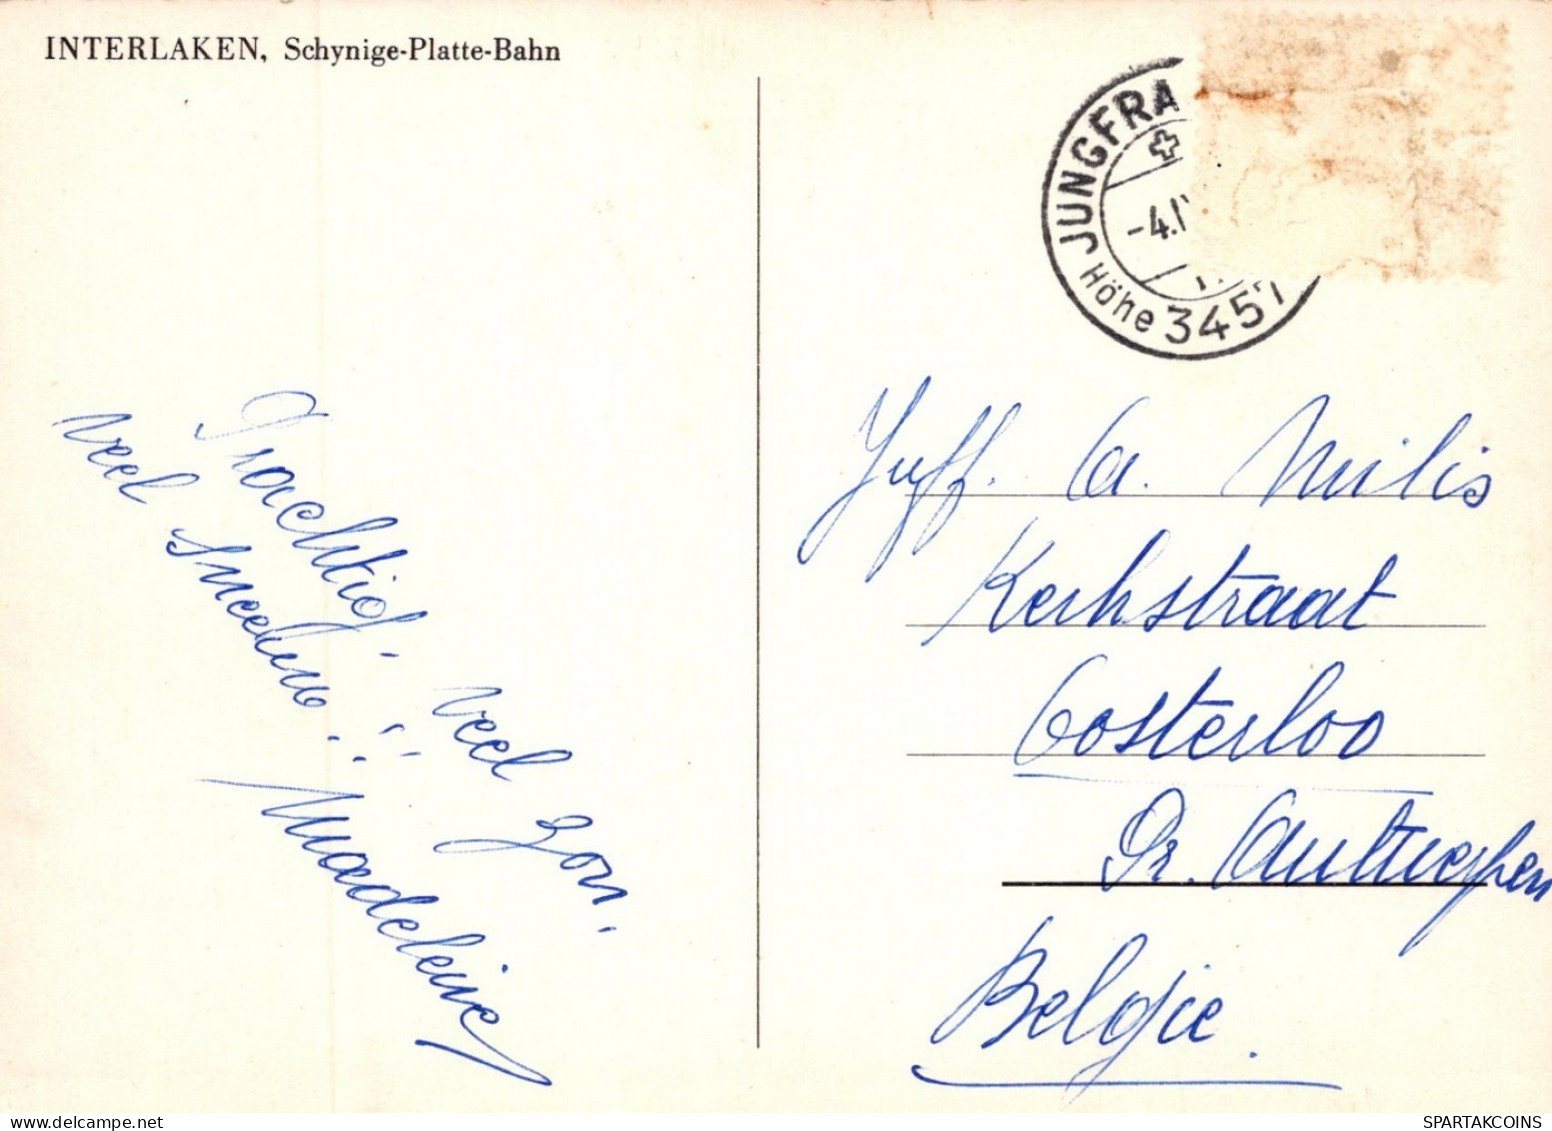 INTERLAKEN, Schynige-Platte-Bahn
JUNGFRA
-4.IV
Höhe 3457
Prachtig! veel zon,
veel sneeuw!!
Madeleine
Juff. A. Milis
Kerkstraat
Oosterloo
Pr. Antwerpen
Belgie.
SPARTAKCOINS